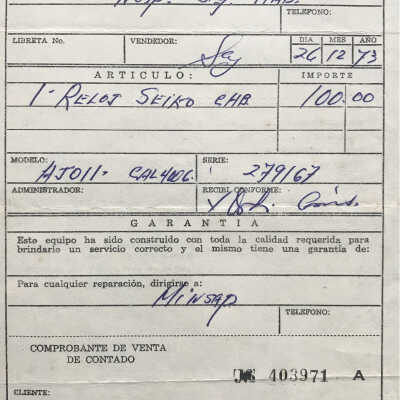 TELEFONO:
LIBRETA No. VENDEDOR: DIA MES AÑO
26 12 73
ARTICULO: IMPORTE
1- RELOJ SEIKO CAB. 100.00
MODELO: SERIE:
AJ011- 279167
ADMINISTRADOR: RECIBI CONFORME:
GARANTIA
Este equipo ha sido construido con toda la calidad requerida para
brindarle un servicio correcto y el mismo tiene una garantía de:
Para cualquier reparación, dirigirse a:
Minsap
TELEFONO:
COMPROBANTE DE VENTA
DE CONTADO
403971 A
CLIENTE: